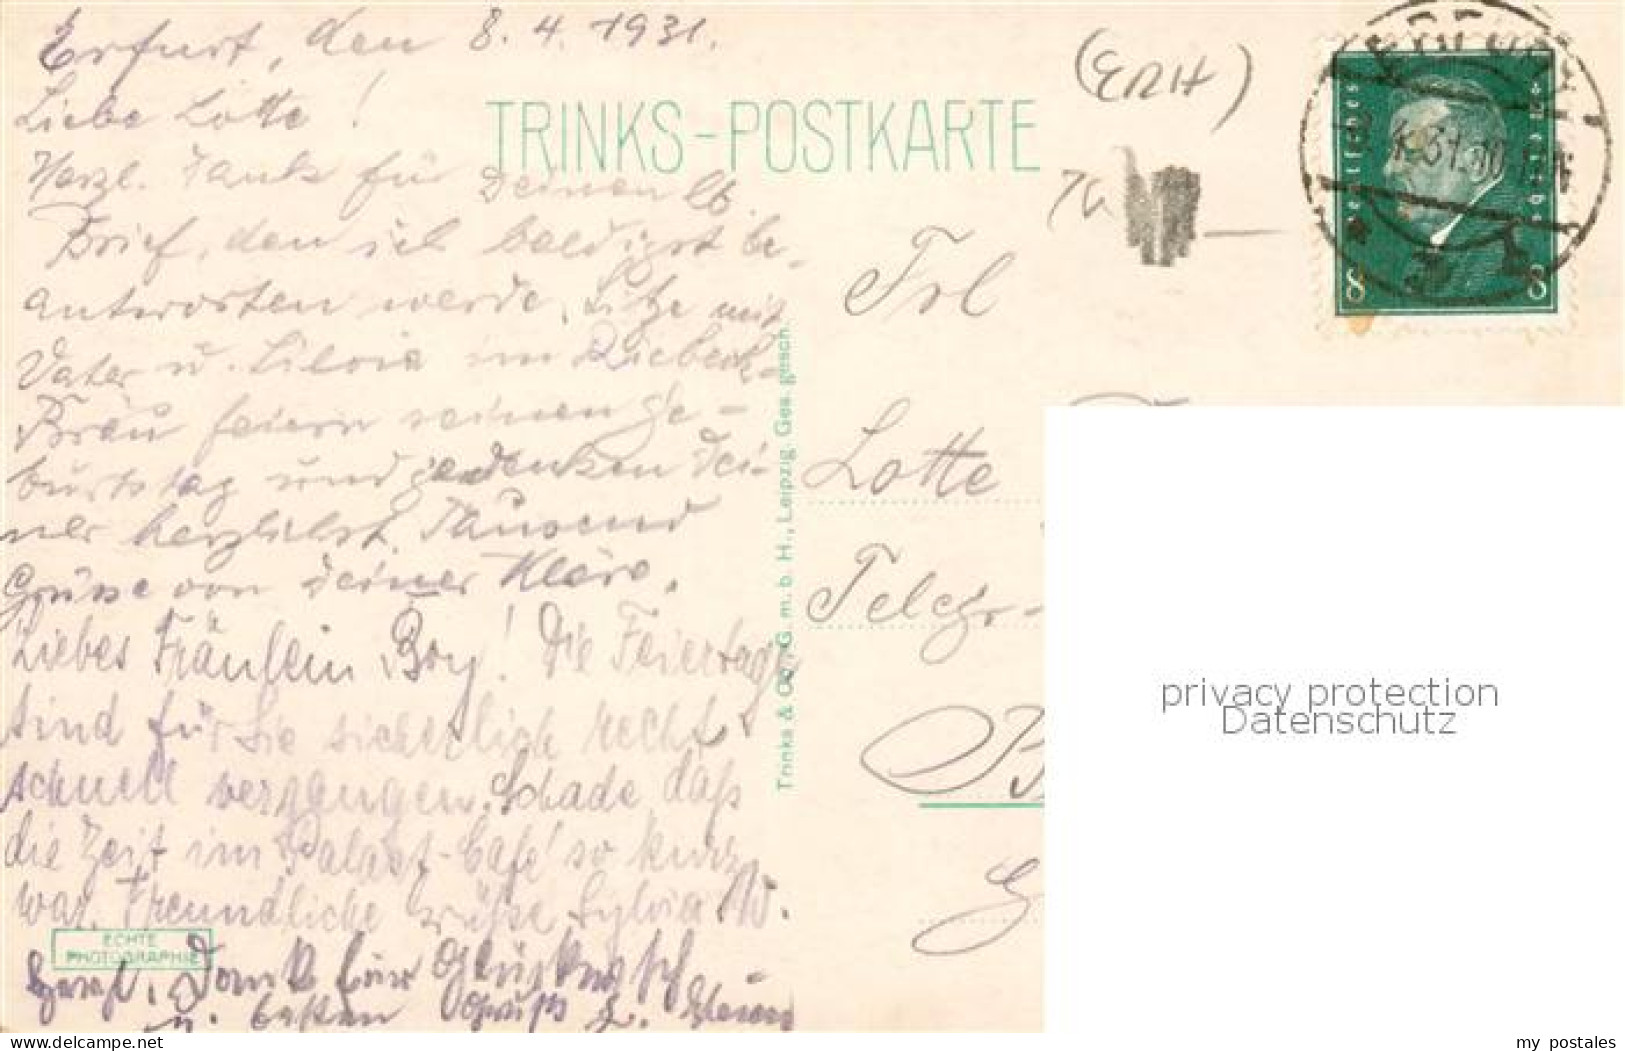 Erfurt, den 8. 4. 1931.
Liebe Lotte!
Herzl. Dank für Deinen lb.
Brief, den ich baldigst be-
antworten werde. Sitze mit
Vater u. Silvia im Riebeck-
Bräu feiern seinen Ge-
burtstag und gedenken Dei-
ner herzlichst. Tausend
Grüsse von Deiner Kläre.
Liebes Fräulein Bry! Die Feiertage
sind für Sie sicherlich recht
schnell vergangen. Schade daß
die Zeit im Palast-Café so kurz
war. Freundliche Grüße Sylvia W.
Herzl. Dank für
u. besten Gruß
TRINKS-POSTKARTE
(ERH)
Deutsches Reich
8 8
Frl
Lotte
Telegr-
Trinks & Co., G. m. b. H., Leipzig. Ges. gesch.
ECHTE
PHOTOGRAPHIE
privacy protection
Datenschutz
www.delcampe.net
my_postales